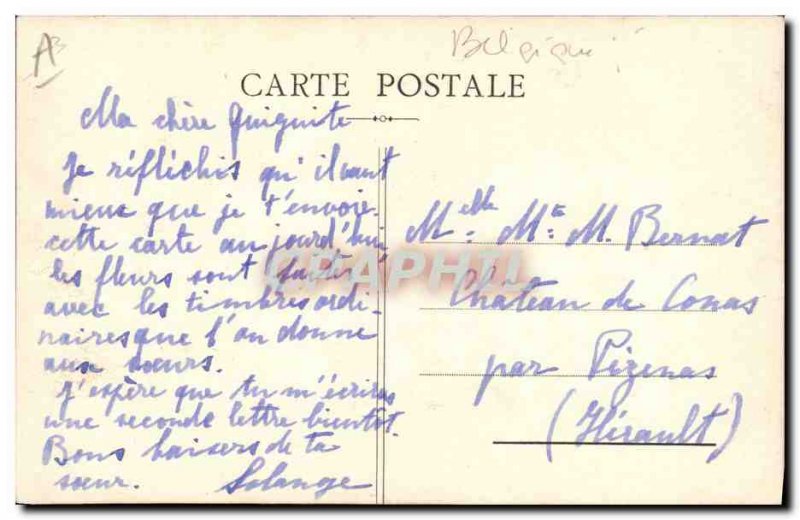 A3
Belgique
CARTE POSTALE
Ma chère Guiguite
Je réfléchis qu'il vaut
mieux que je t'envoie
cette carte aujourd'hui
les fleurs sont faites
avec les timbres ordi-
naires que l'on donne
aux sœurs.
J'espère que tu m'écriras
une seconde lettre bientôt.
Bons baisers de ta
sœur. Solange
Melle Me M. Bernat
Château de Conas
par Pézenas
(Hérault)
CPAPHIL